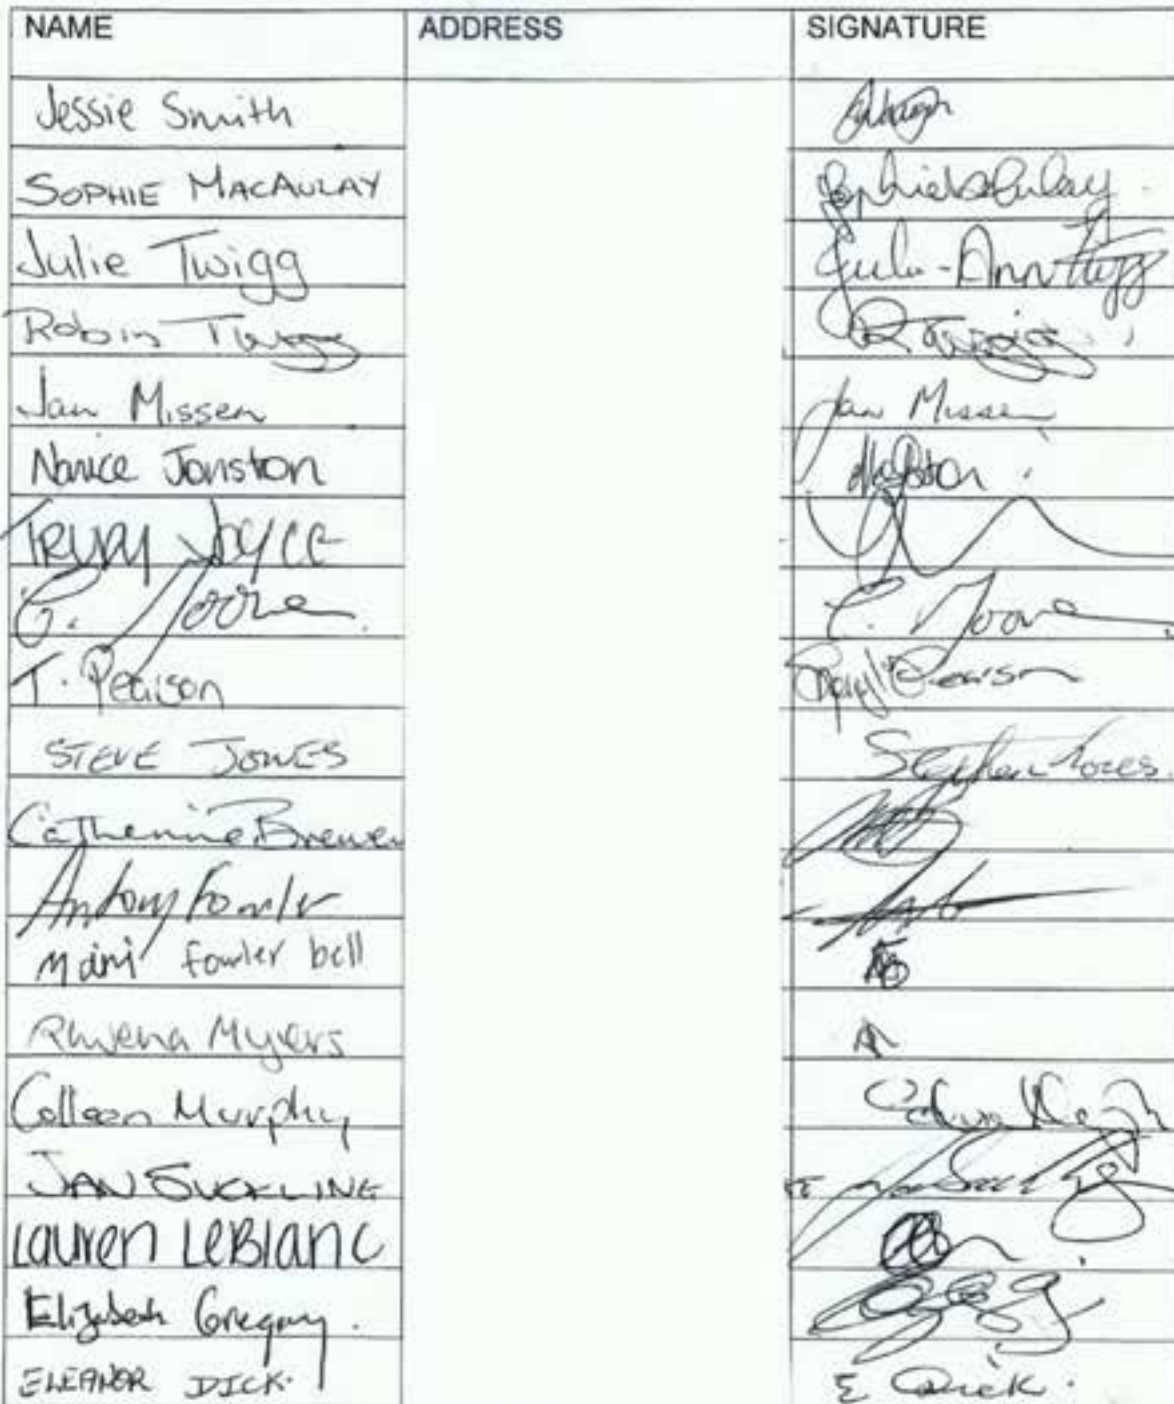 NAME ADDRESS SIGNATURE
Jessie Smith
SOPHIE MACAULAY
Julie Twigg Julie-Ann Twigg
Robin Twigg R Twigg
Jan Missen Jan Missen
Narice Jonston
TRUDY JOYCE
C. Moore C. Moore
T. Pearson Pearson
STEVE JONES Stephen Jones
Catherine Brewer
Antony Fowler
Mairi fowler bell
Rhwena Myers
Colleen Murphy
JAN SUCKLING
Lauren LeBlanc
Elizabeth Gregory
ELEANOR DICK E Dick